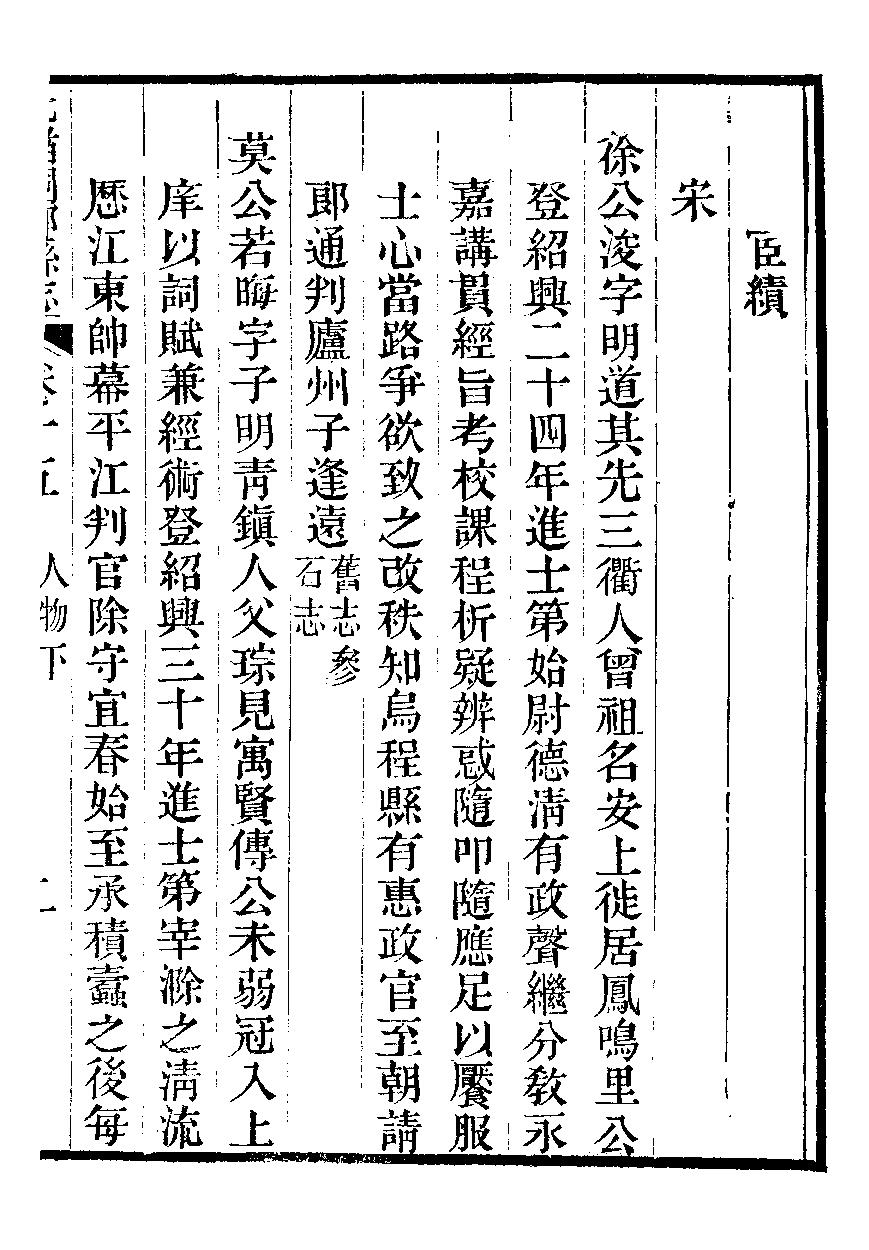 臣績
宋
徐公浚字明道其先三衢人曾祖名安上徙居鳳鳴里公
登紹興二十四年進士第始尉德淸有政聲繼分敎永
嘉講貫經旨考校課程析疑辨惑隨叩隨應足以饜服
士心當路爭欲致之改秩知烏程縣有惠政官至朝請
郞通判廬州子逢遠舊志參
石志
莫公若晦字子明靑鎭人父琮見寓賢傳公未弱冠入上
庠以詞賦兼經術登紹興三十年進士第宰滁之淸流
歷江東帥幕平江判官除守宜春始至承積蠹之後每
桐鄕縣志 卷十五 人物下 二